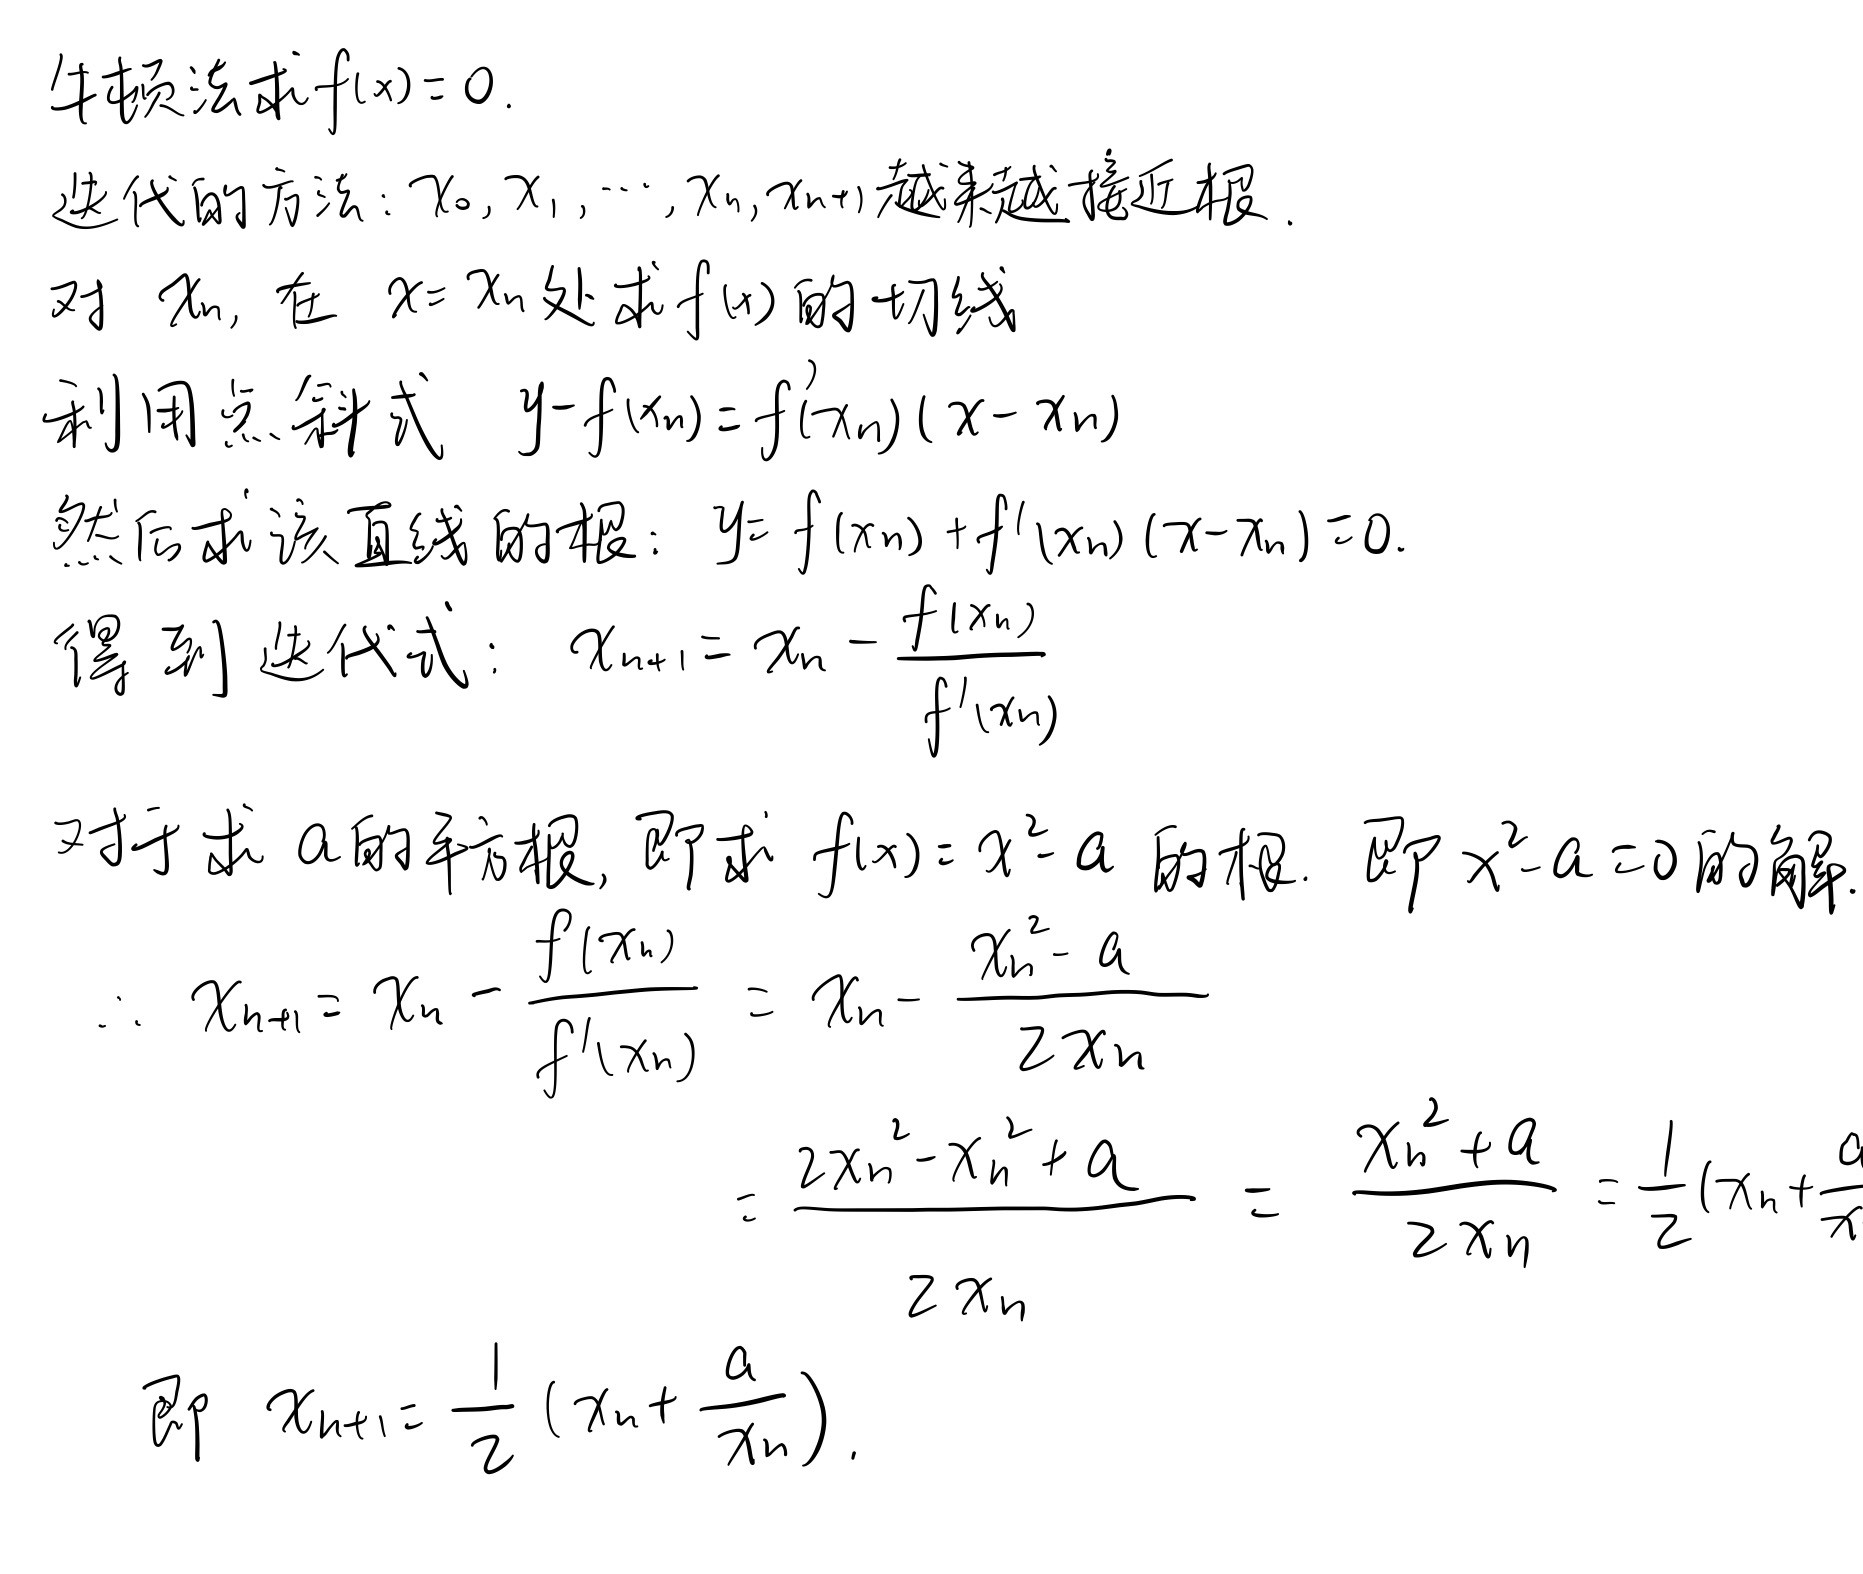 牛顿法求f(x)=0.
迭代的方法: x₀, x₁, ..., xₙ, xₙ₊₁ 越来越接近根.
对 xₙ, 在 x=xₙ处求f(x)的切线
利用点斜式 y-f(xₙ)=f'(xₙ)(x-xₙ)
然后求该直线的根: y=f(xₙ)+f'(xₙ)(x-xₙ)=0.
得到迭代式: xₙ₊₁=xₙ-f(xₙ)/f'(xₙ)
对于求a的平方根, 即求 f(x)=x²-a 的根. 即x²-a=0的解.
∴ xₙ₊₁=xₙ-f(xₙ)/f'(xₙ)=xₙ-(xₙ²-a)/2xₙ
=(2xₙ²-xₙ²+a)/2xₙ=(xₙ²+a)/2xₙ=1/2(xₙ+a/x
即 xₙ₊₁=1/2(xₙ+a/xₙ).